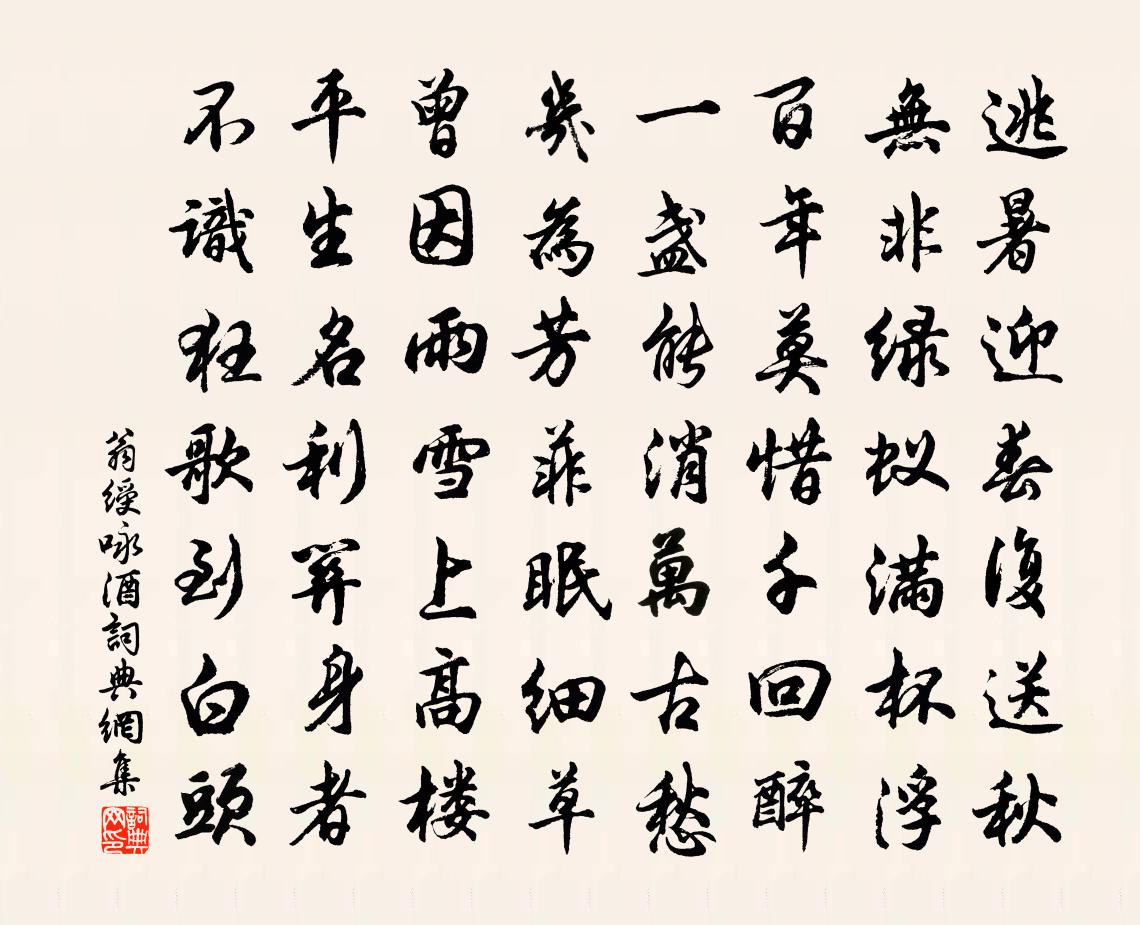 逃暑迎春復送秋
無非緑蚁滿杯浮
百年莫惜千回醉
一盏能消萬古愁
幾為芳菲眠细草
曾因雨雪上高楼
平生名利關身者
不識狂歌到白頭
翁綬咏酒詞典網集
詞典网印